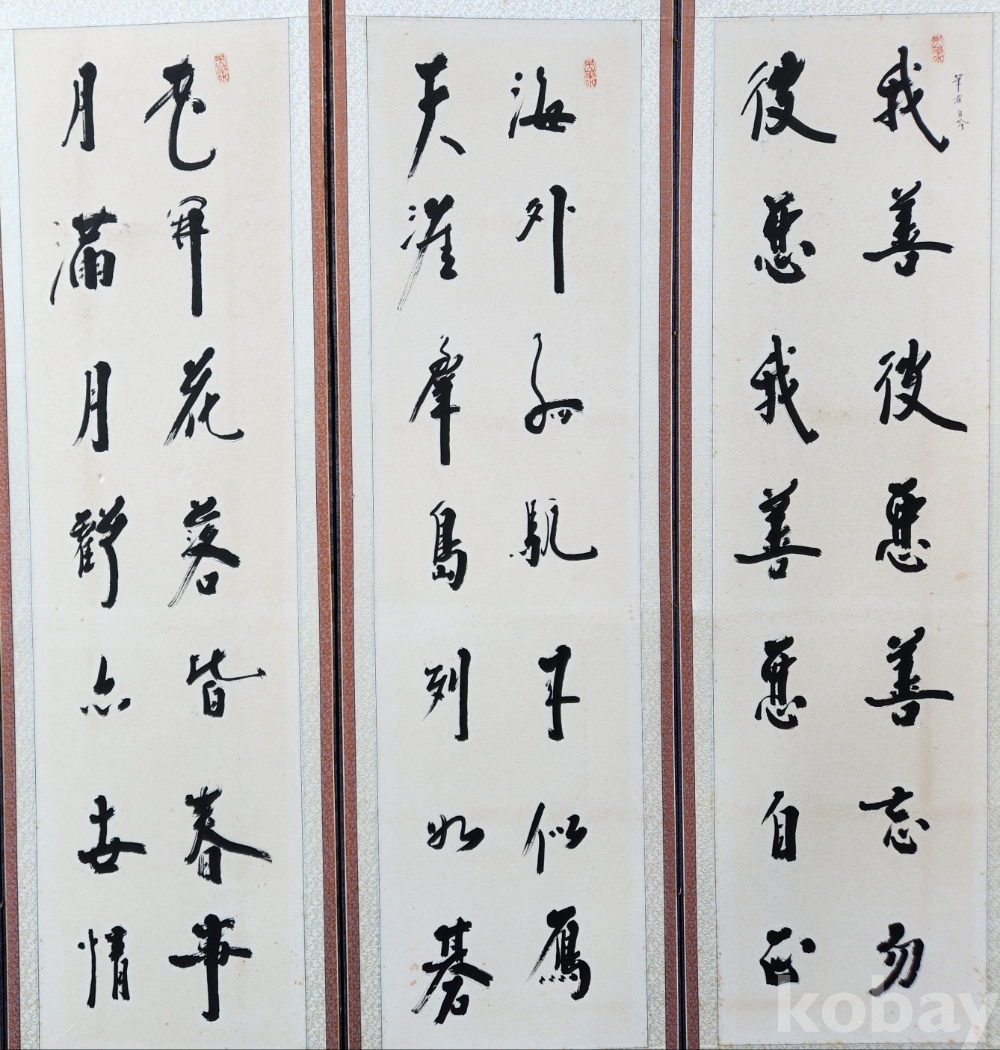 筆者自吟
我善彼惡善忘勿
彼惡我善惡自正
海外航舟似鴈
天涯羣島列如碁
花開花落皆春事
月滿月虧亦世情
kobay